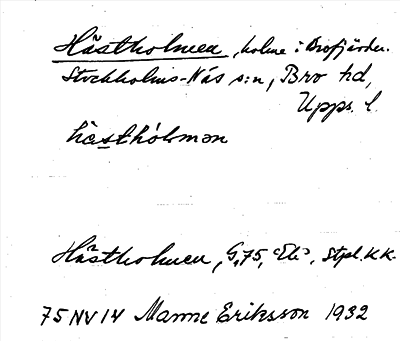 Hästholmen, holme i Brofjärden.
Stockholms-Näs s:n, Bro hd,
Upps. l.
hästhòlmən
Hästholmen, G,75, "Ek", Stpl.KK.
75 NV 14 Manne Eriksson 1932